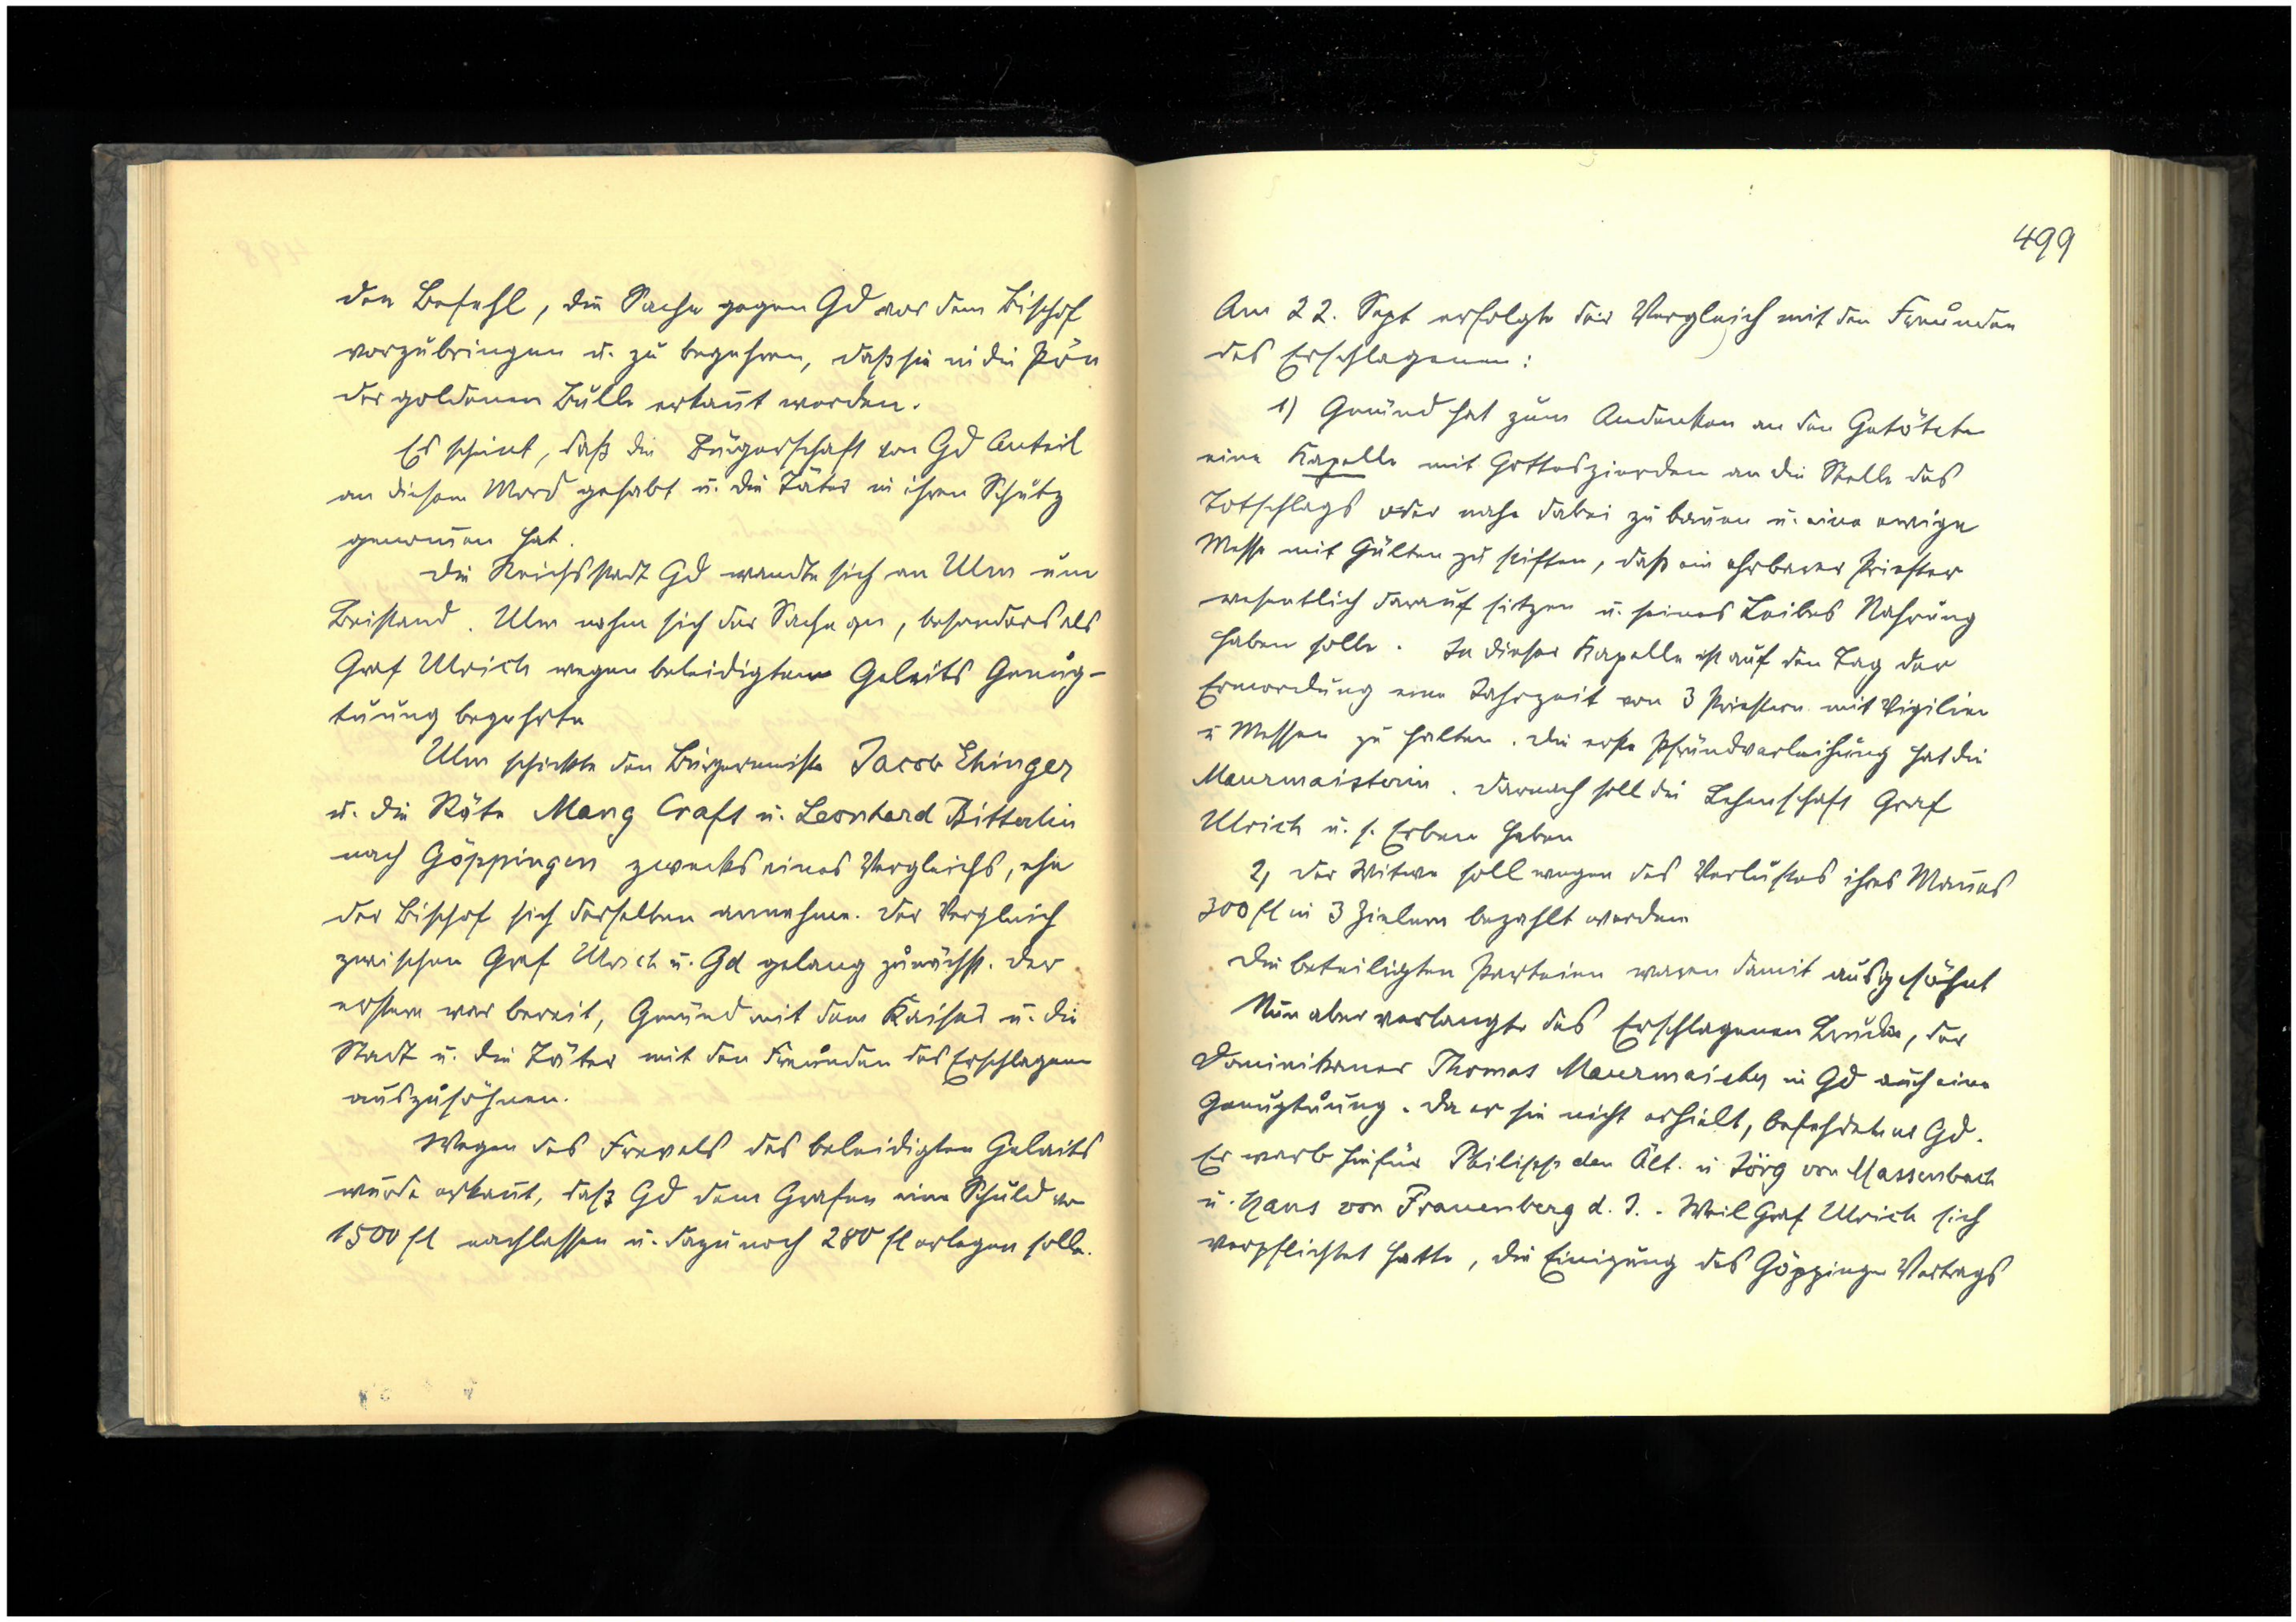 den Befehl, die Sache gegen Gd vor dem Bischof
vorzubringen u. zu begehren, daß sie in die Pön
der goldenen Bulle erkan̄t werden.
Es scheint, daß die Bürgerschaft von Gd Anteil
an diesem Mord gehabt u. die Täter in ihren Schutz
genom̄en hat.
Die Reichsstadt Gd wandte sich an Ulm um
Beistand. Ulm nahm sich der Sache an, besonders als
Graf Ulrich wegen beleidigtem Geleits Genug-
tuung begehrte
Ulm schickte den Bürgermeister Jacob Ehinger
u. die Räte Mang Craft u. Leonhard Bitterlin
nach Göppingen zwecks eines Vergleichs, ehe
der Bischof sich derselben annehme. Der Vergleich
zwischen Graf Ulrich u. Gd gelang zunächst. Der
erstere war bereit, Gmünd mit dem Kaiser u. die
Stadt u. die Täter mit den Freunden des Erschlagenen
auszusöhnen.
Wegen des Frevels des beleidigten Geleits
wurde erkan̄t, daß Gd dem Grafen eine Schuld von
1500 fl nachlassen u. dazu noch 280 fl erlegen solle.
499
Am 22. Sept erfolgte der Vergleich mit den Freunden
des Erschlagenen:
1) Gmünd hat zum Andenken an den Getöteten
eine Kapelle mit Gotteszierden an die Stelle des
Totschlags oder nahe dabei zu bauen u. eine ewige
Messe mit Gülten zu stiften, daß ein ehrbarer Priester
wesentlich darauf sitzen u. seines Leibes Nahrung
haben solle. In dieser Kapelle ist auf den Tag der
Ermordung eine Jahrzeit von 3 Priestern mit Vigilien
u Messen zu halten. Die erste Pfründverleihung hat die
Maurmaisterin. Darnach soll die Lehenschaft Graf
Ulrich u. s. Erben haben
2, Der Witwe soll wegen des Verlustes ihres Man̄es
300 fl in 3 Zielern bezahlt werden
Die beteiligten Parteien waren damit ausgesöhnt
Nun aber verlangte des Erschlagenen Bruder, der
Dominikaner Thomas Maurmaister in Gd auch eine
Genugtuung. Da er sie nicht erhielt, befehdete er Gd.
Er warb hiefür Philipp den Ält. u Jörg von Massenbach
u. Hans von Frauenberg d. J. - Weil Graf Ulrich sich
verpflichtet hatte, die Einigung des Göppinger Vertrags